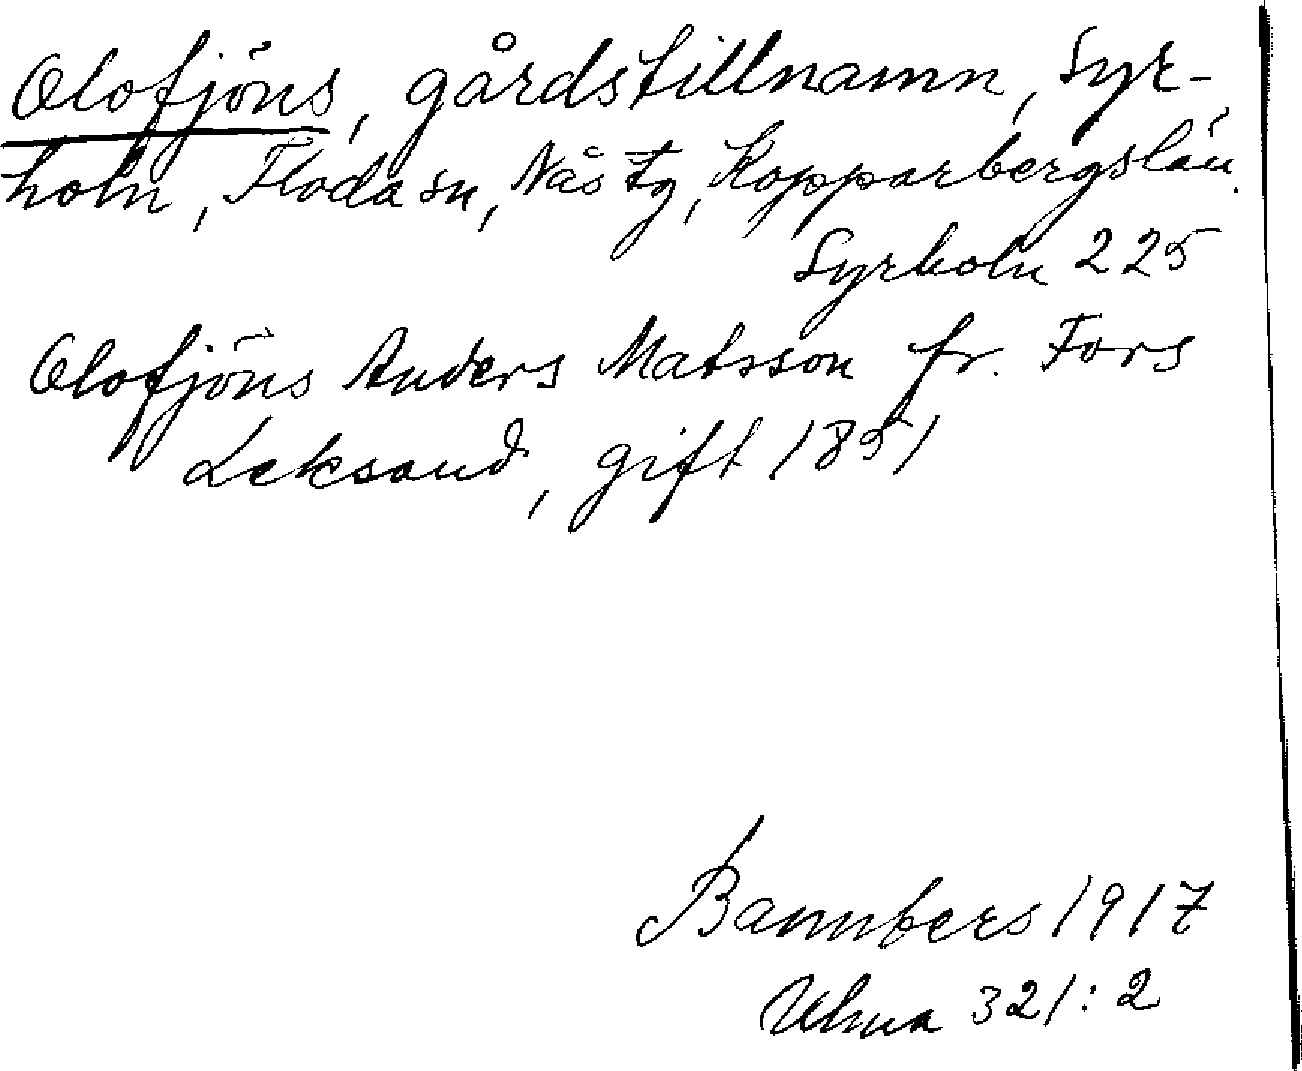 Olofjöns, gårdstillnamn, Syr-
holn, Floda sn, Nås tg, Kopparbergs län.
Syrholn 225
Olofjöns Anders Matsson fr. Fors
Leksand, gift 1851
Bannbers 1917
Ulma 321:2